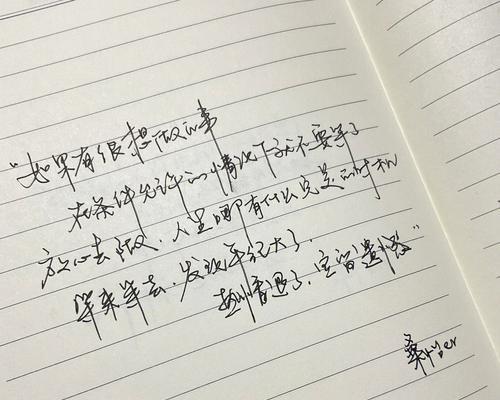 “如果有很想做的事
在条件允许的情况下就不要等了
放心去做、人生哪有什么完美的时机
等来等去、发现年纪大了、
热情退了、空留遗憾”